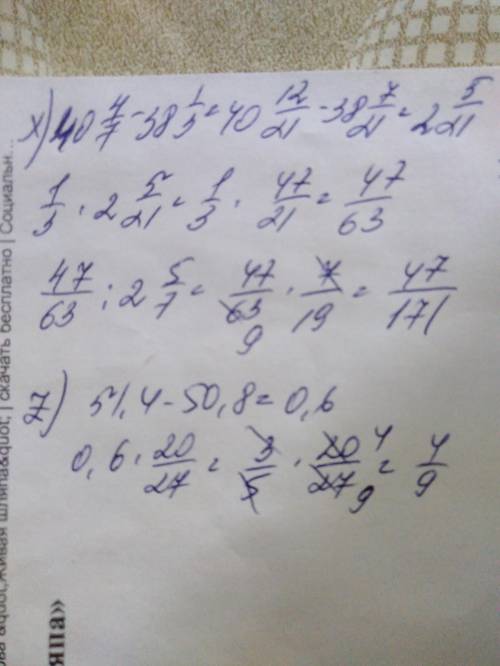 х) 40 4/7 - 38 1/3 = 40 12/21 - 38 7/21 = 2 5/21
1/3 · 2 5/21 = 1/3 · 47/21 = 47/63
47/63 : 2 5/7 = 47/63 · 7/19 = 47/171
9
z) 51,4 - 50,8 = 0,6
0,6 · 20/27 = 3/5 · 20/27 = 4/9
4
9
| скачать бесплатно | Социальн...